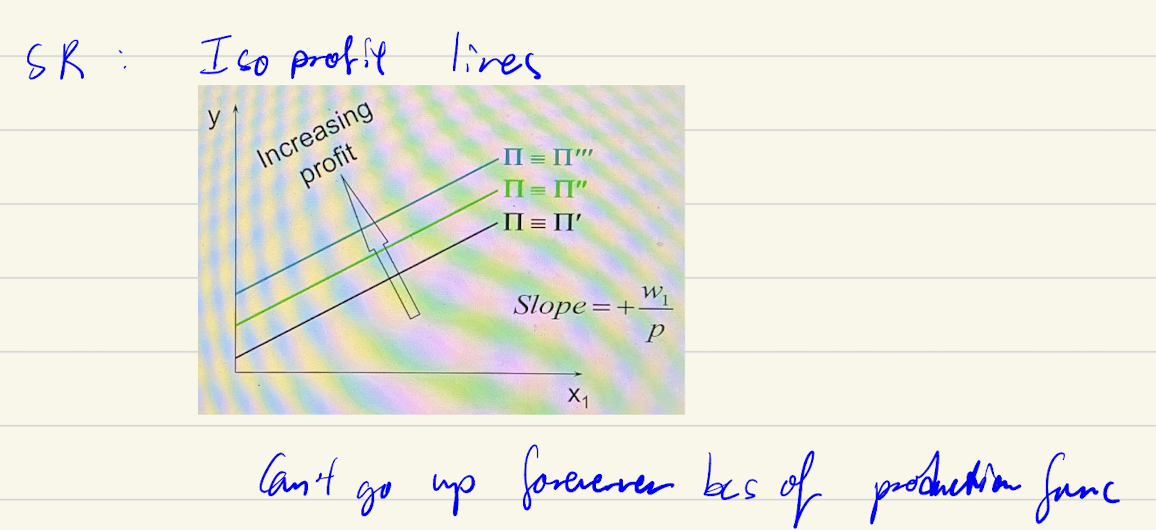 SR : Iso profit lines
y
Increasing
profit
Π ≡ Π′′′
Π ≡ Π′′
Π ≡ Π′
Slope = + w₁/p
x₁
Can't go up forever bcs of production func